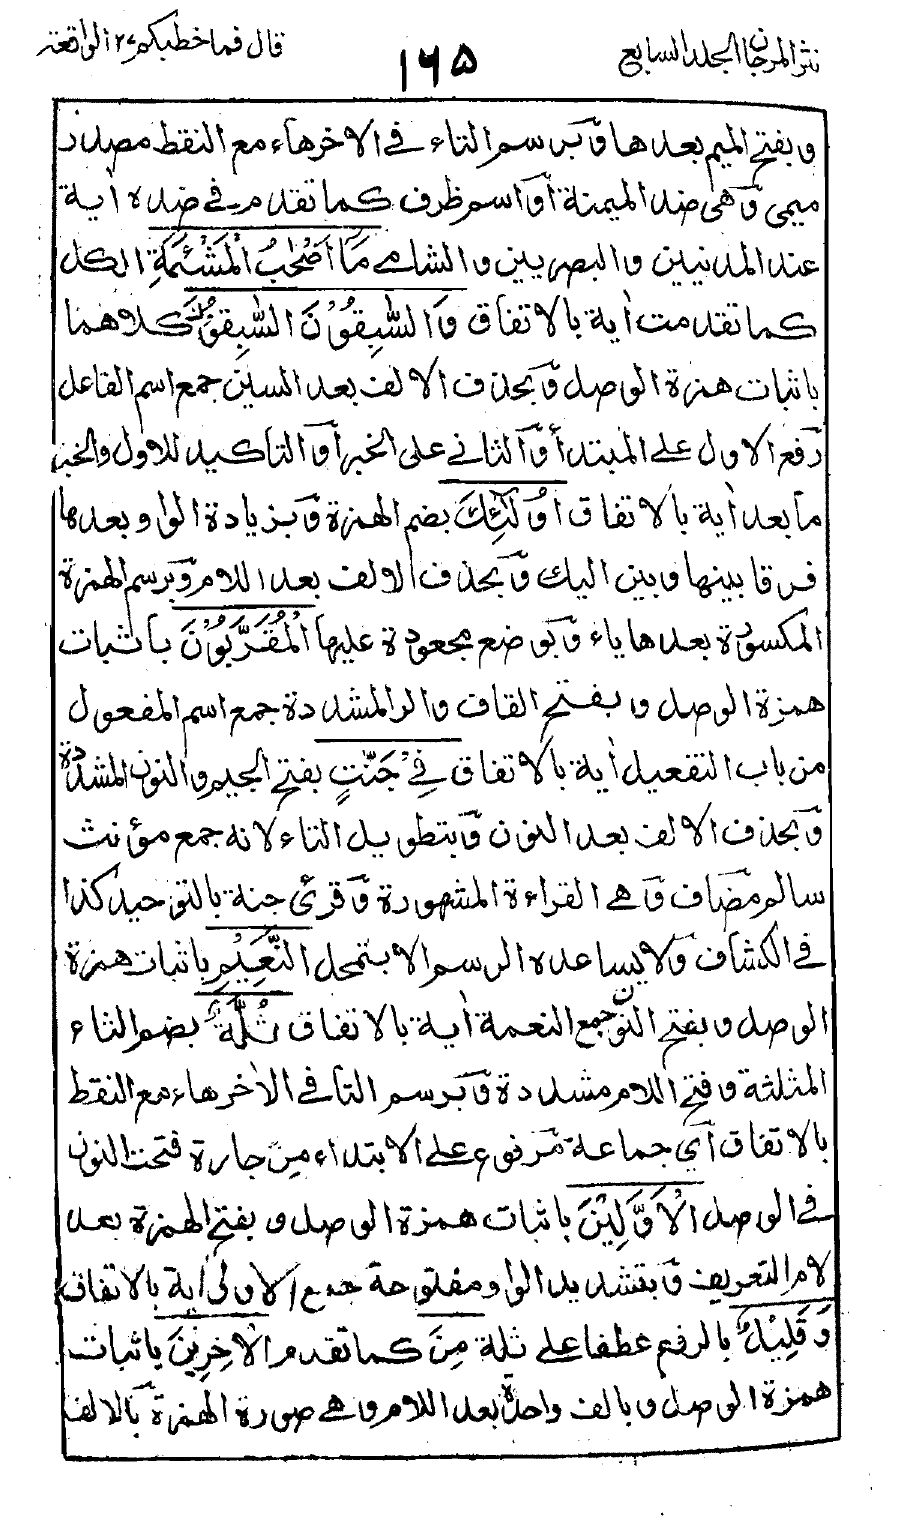 نثر المرجان المجلد السابع
١٦٥
قال فما خطبكم ٢٧ الواقعة
وبفتح الميم بعدها وبرسم التاء فى الاخر هاء مع النقط مصدر
ميمى وهى ضد الميمنة او اسم ظرف كما تقدم فى ضده اٰية
عند المدنيين والبصريين والشامے مَا اَصْحٰبُ الْمَشْئَمَةِ الكل
كما تقدمت اٰية بالاتفاق وَالسّٰبِقُوْنَ السّٰبِقُوْنَ كلاهما
باثبات همزة الوصل وبحذف الالف بعد السين جمع اسم الفاعل
رفع الاول على المبتدأ والثانے على الخبر او التاكيد للاول والخبر
ما بعد اٰية بالاتفاق اُولٰٓئِكَ بضم الهمزة وبزيادة الواو بعدها
فرقا بينها وبين اليك وبحذف الالف بعد اللام وبرسم الهمزة
المكسورة بعدها ياء وبوضع مجعودة عليها الْمُقَرَّبُوْنَ باثبات
همزة الوصل وبفتح القاف والر المشددة جمع اسم المفعول
من باب التفعيل اٰية بالاتفاق فِيْ جَنّٰتِ بفتح الجيم والنون المشددة
وبحذف الالف بعد النون وبتطويل التاء لانه جمع مؤنث
سالم مضاف وهے القراءة المشهورة وقرئ جنة بالتوحيد كذا
فى الكشاف ولا يساعده الرسم الا بتمحل النَّعِيْمِ باثبات همزة
الوصل وبفتح النون جمع النعمة اٰية بالاتفاق ثُلَّةٌ بضم الثاء
المثلثة وفتح اللام مشددة وبرسم التا فى الاٰخر هاء مع النقط
بالاتفاق اى جماعة مرفوع على الابتداء مِنَ جارة فتحت النون
فى الوصل الْاَوَّلِيْنَ باثبات همزة الوصل وبفتح الهمزة بعد
لام التعريف وبتشديد الواو مفتوحة جمع الاولى اٰية بالاتفاق
وَقَلِيْلٌ بالرفع عطفا على ثلة مِنَ كما تقدم الْاٰخِرِيْنَ باثبات
همزة الوصل وبالف واحدة بعد اللام وهے صورة الهمزة بالالف